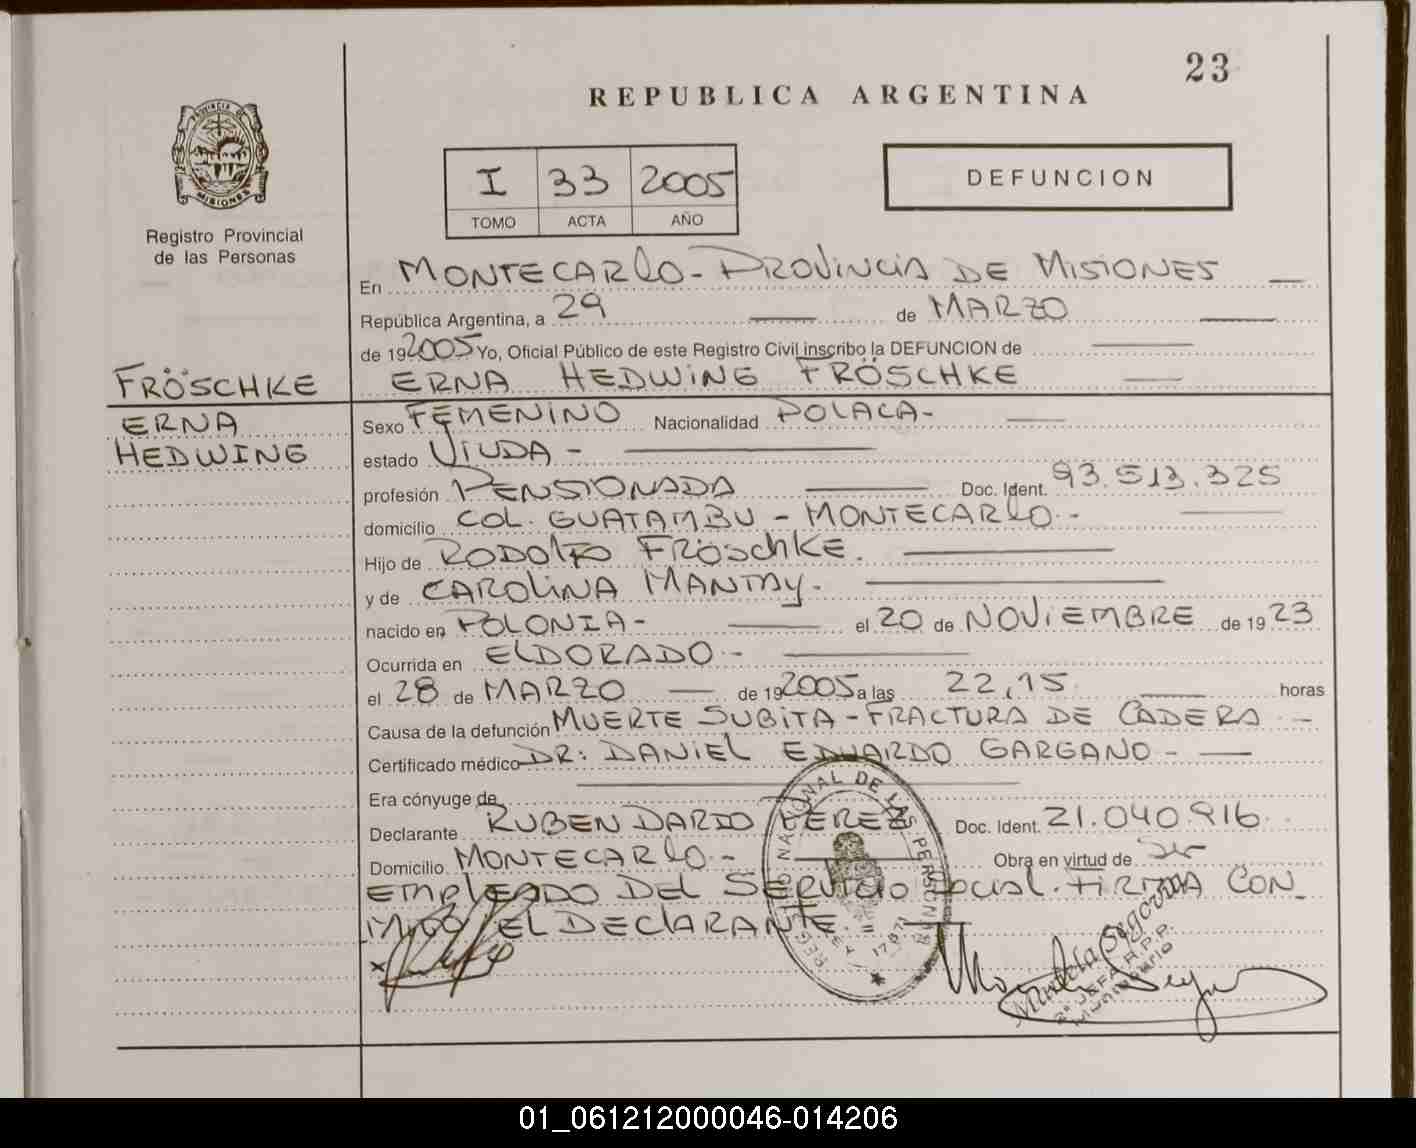 23
REPUBLICA ARGENTINA
PROVINCIA DE
MISIONES
Registro Provincial
de las Personas
I 33 2005
TOMO ACTA AÑO
DEFUNCION
En MONTECARLO - PROVINCIA DE MISIONES
República Argentina, a 29 de MARZO
de 19 2005 Yo, Oficial Público de este Registro Civil inscribo la DEFUNCION de
FRÖSCHKE ERNA HEDWING FRÖSCHKE
ERNA
HEDWING
Sexo FEMENINO Nacionalidad POLACA-
estado VIUDA -
profesión PENSIONADA Doc. Ident. 93.513.325
domicilio COL. GUATAMBU - MONTECARLO.-
Hijo de RODOLFO FRÖSCHKE.
y de CAROLINA MANTAY.
nacido en POLONIA- el 20 de NOVIEMBRE de 19 23
Ocurrida en ELDORADO.-
el 28 de MARZO de 19 2005 a las 22,15 horas
Causa de la defunción MUERTE SUBITA - FRACTURA DE CADERA.-
Certificado médico DR: DANIEL EDUARDO GARGANO -
Era cónyuge de
Declarante RUBEN DARIO PEREZ Doc. Ident. 21.040.916
Domicilio MONTECARLO.- Obra en virtud de Ser
EMPLEADO DEL SERVICIO SOCIAL. FIRMA CON_
MIGO EL DECLARANTE.=
REGISTRO NACIONAL DE LAS PERSONAS
2º JEFA R.P.P.
01_061212000046-014206